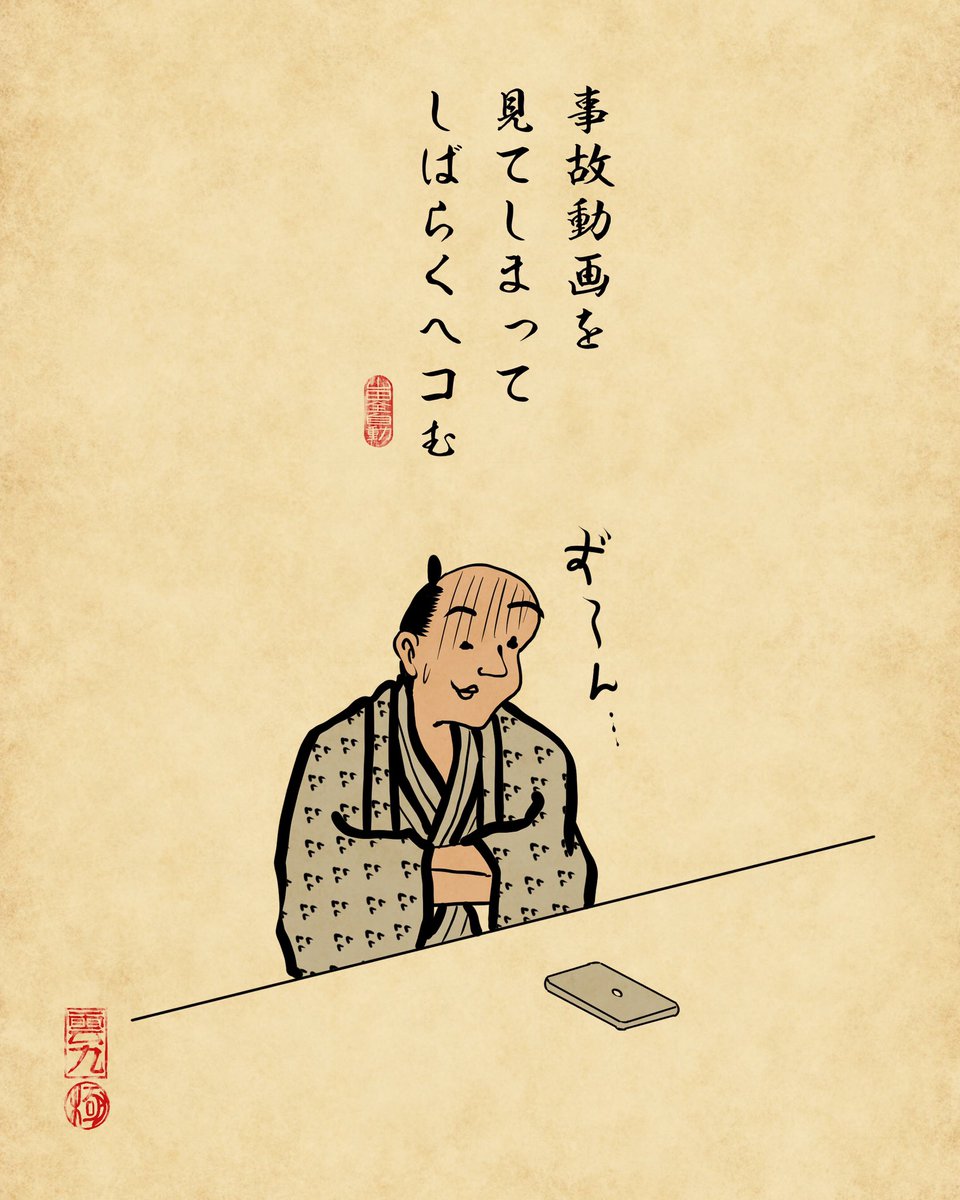 事故動画を
見てしまって
しばらくヘコむ
ず〜ん…